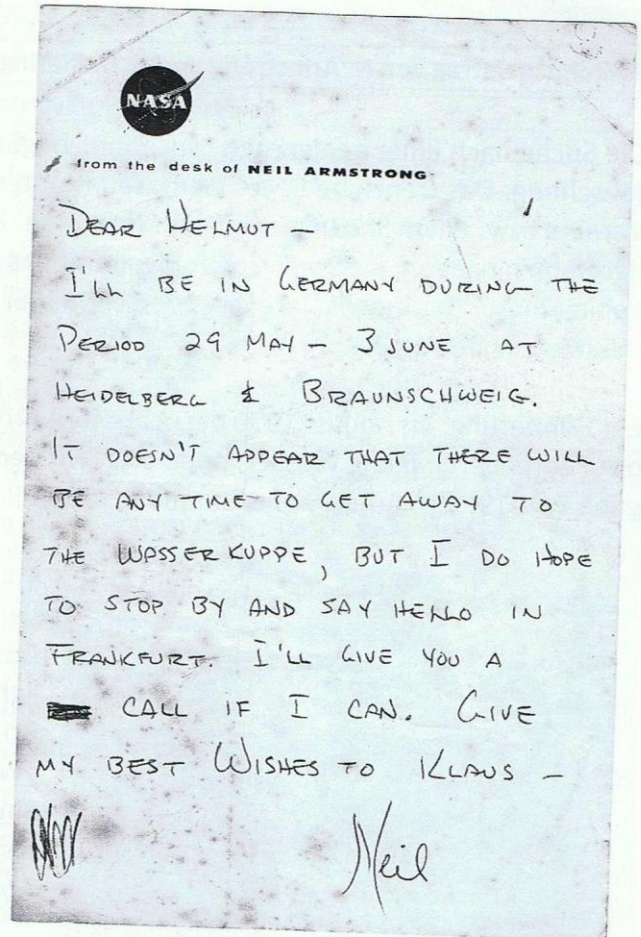 NASA
from the desk of NEIL ARMSTRONG
DEAR HELMUT —
I'LL BE IN GERMANY DURING THE
PERIOD 29 MAY – 3 JUNE AT
HEIDELBERG & BRAUNSCHWEIG.
IT DOESN'T APPEAR THAT THERE WILL
BE ANY TIME TO GET AWAY TO
THE WASSERKUPPE, BUT I DO HOPE
TO STOP BY AND SAY HELLO IN
FRANKFURT. I'LL GIVE YOU A
CALL IF I CAN. GIVE
MY BEST WISHES TO KLAUS —
Neil